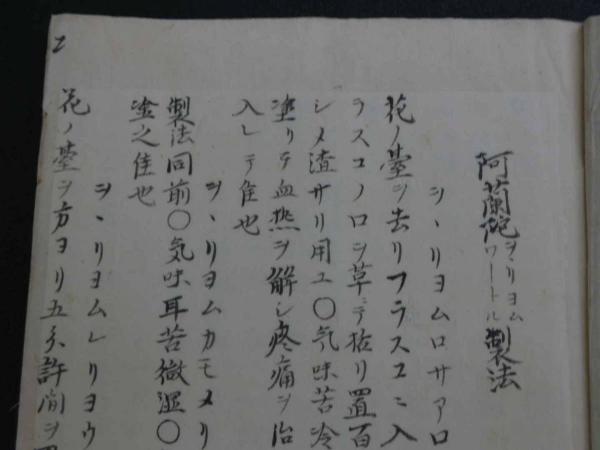 阿蘭陀ヲヽリヨムワートル製法
ヲヽリヨムロサアロ
花ノ臺ヲ去リフラスコニ入
ラスコノロヲ草ニテ括リ置百
シメ渣サリ用ユ〇気味苦冷
塗リテ血熱ヲ解シ疼痛ヲ治
入レテ佳也
ヲヽリヨムカモメリ
製法同前〇気味耳苦微温〇
塗之佳也
ヲヽリヨムレリヨウ
花ノ臺ヲ方ヨリ五分許間ヲ